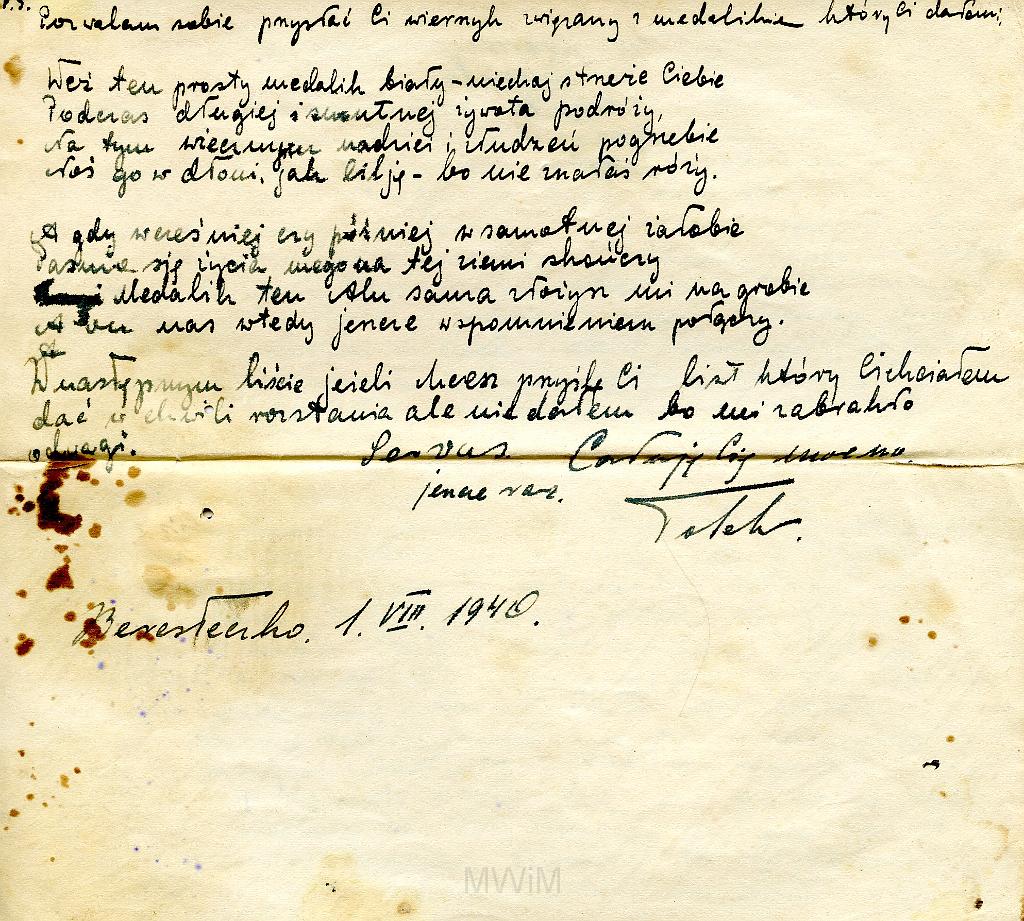 P.S.
Pozwalam sobie przysłać Ci wierszyk związany z medalikiem który Ci dałem;
Weź ten prosty medalik biały – niechaj strzeże Ciebie
Podczas długiej i smutnej żywota podróży,
Na tym wiecznym nadziei i złudzeń pogrzebie
Noś go w dłoni, jak lilję – bo nie znałaś róży.
A gdy wcześniej czy później w samotnej żałobie
Pasmo się życia mego na tej ziemi skończy
Medalik ten Alu sama złożysz mi na grobie
A on nas wtedy jeszcze wspomnieniem połączy.
W następnym liście jeżeli chcesz przyślę Ci list który Ci chciałem
dać w chwili rozstania ale nie dałem bo mi zabrakło
odwagi.
Servus Całuję Cię mocno.
jeszcze raz.
Tolek.
Beresteczko. 1. VIII. 1940.
MWiM